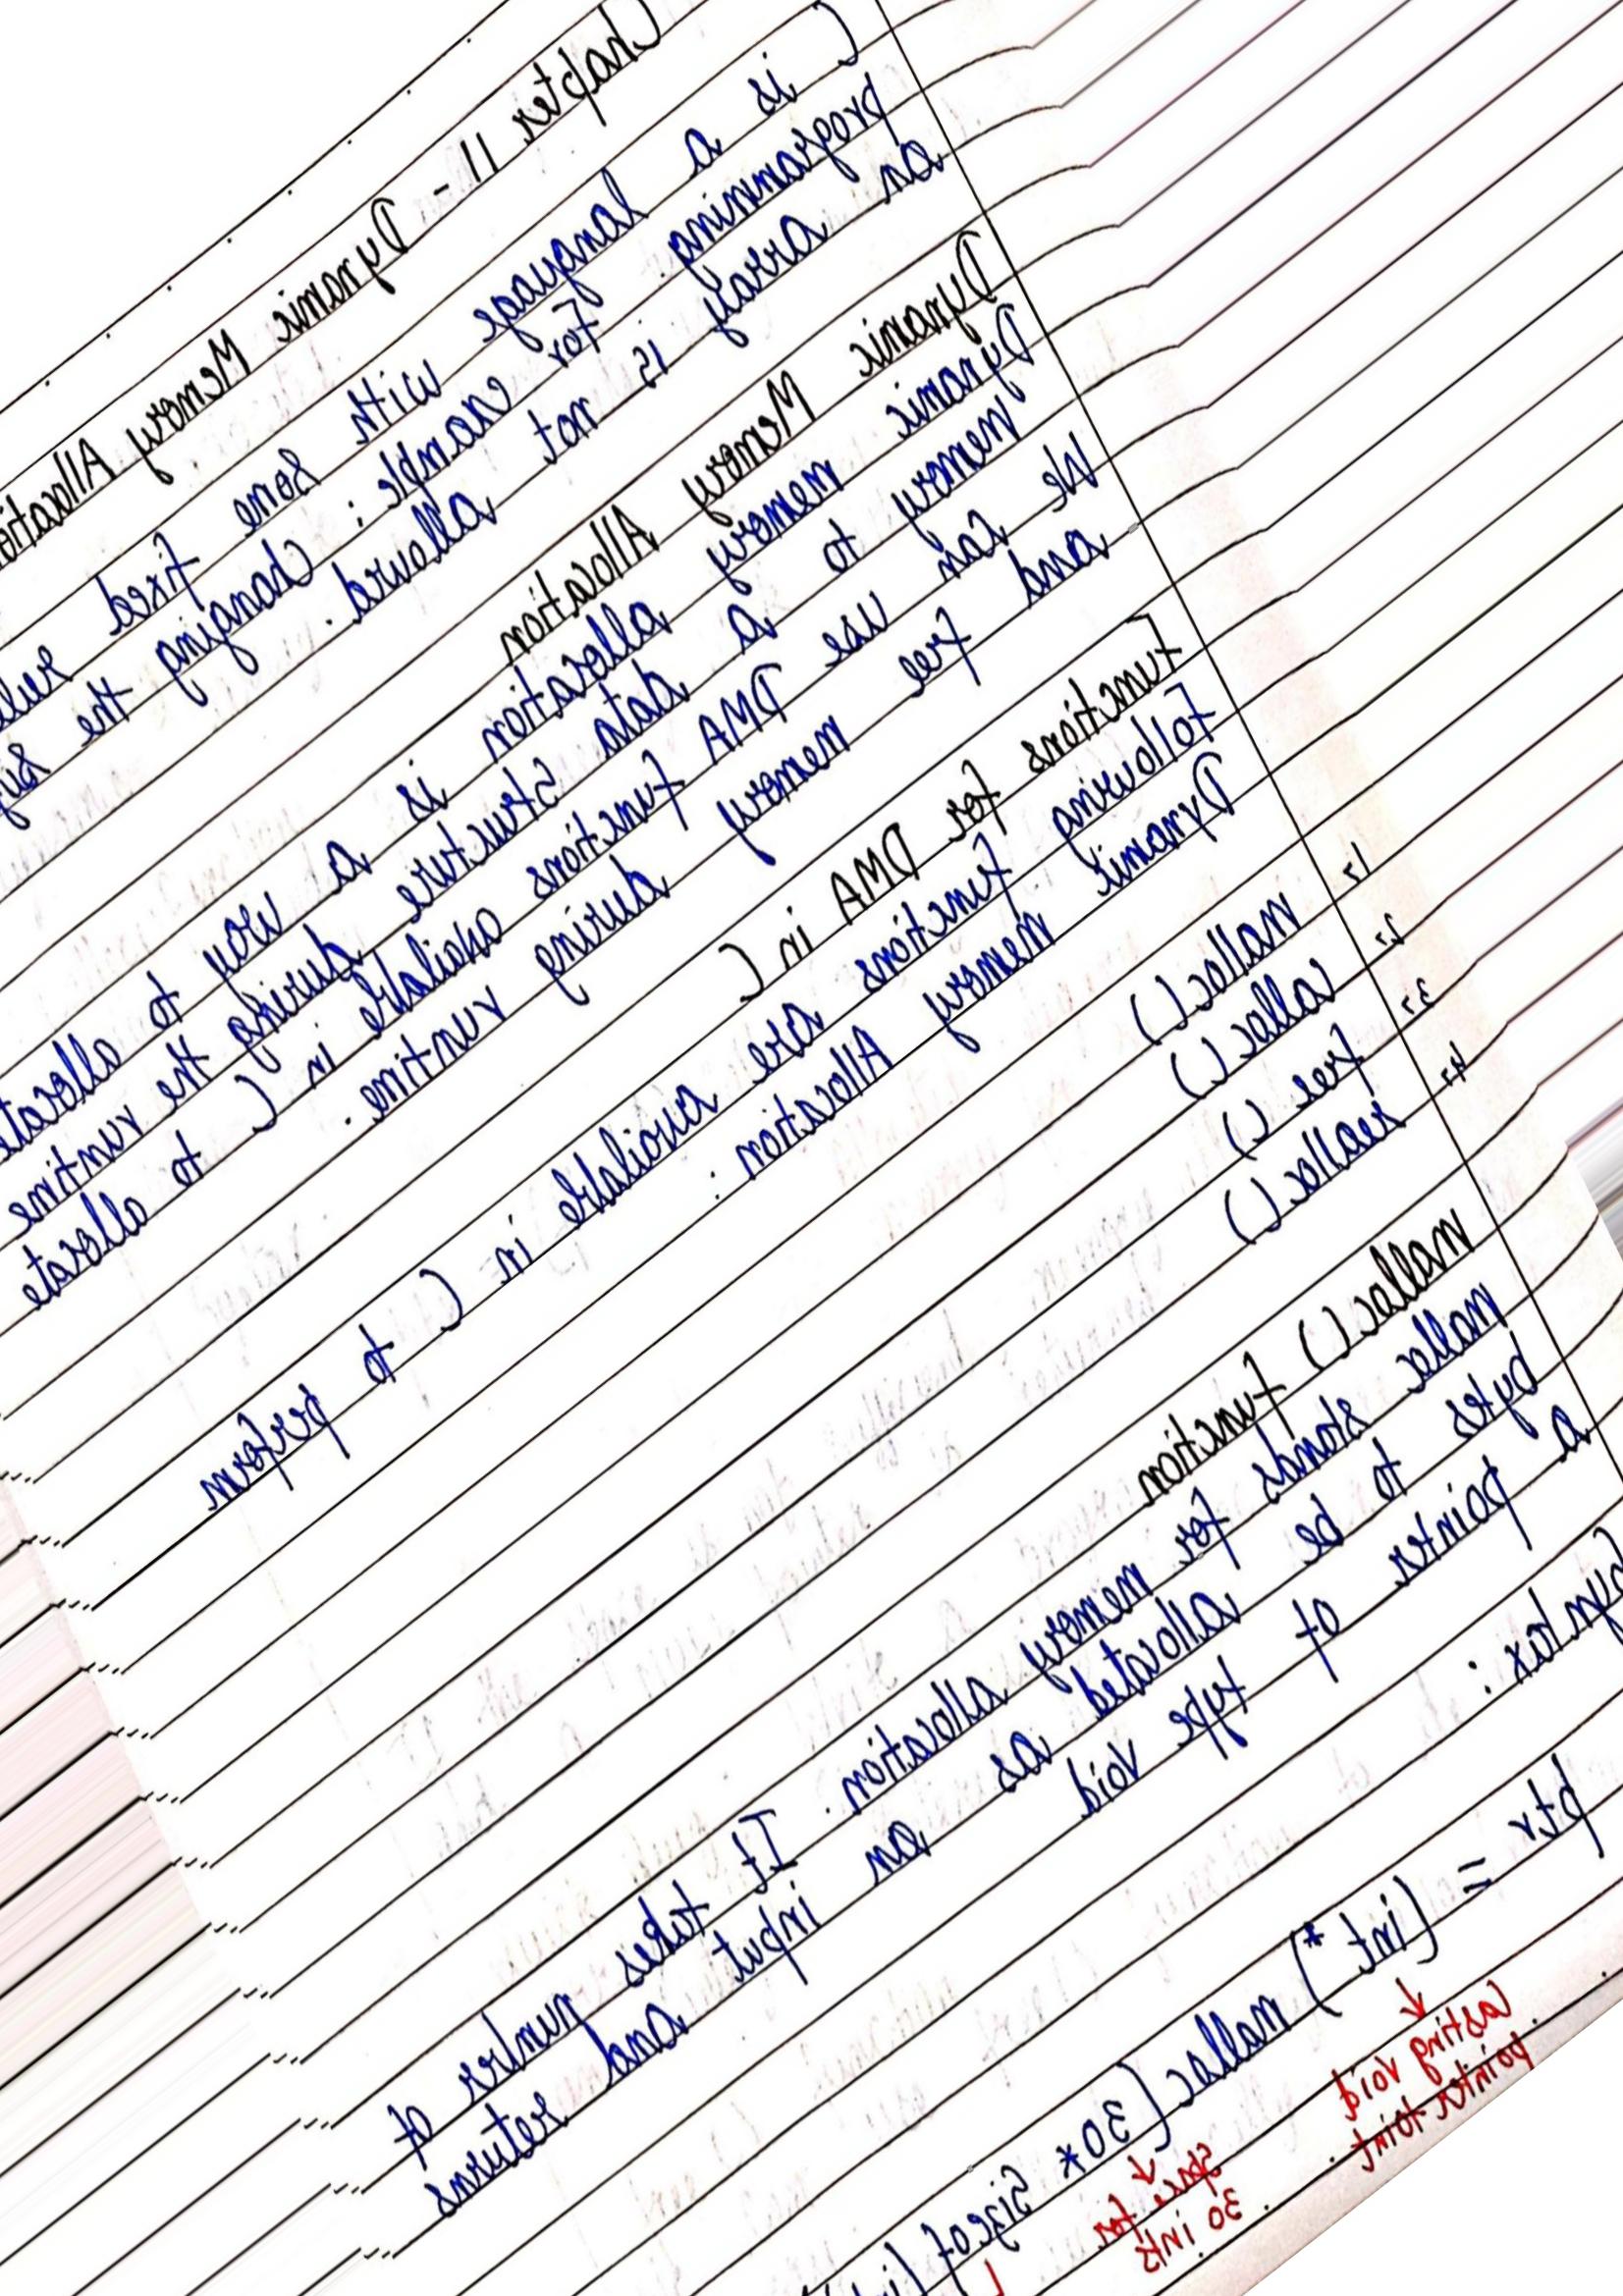 Chapter 11 - Dynamic Memory
C is a language with some fixed
programming. For example: Changing the
an array is not allowed.
Dynamic Memory Allocation
Dynamic memory allocation is a way to
memory to a data structure during the runtime
We can use DMA functions available in C to allocate
and free memory during runtime.
Functions for DMA in C
Following functions are available in C to perform
Dynamic Memory Allocation:
1, malloc()
2, calloc()
3, free()
4, realloc()
malloc() function
malloc stands for memory allocation. It takes number of
bytes to be allocated as an input and returns
a pointer of type void
Syntax:
ptr = (int *) malloc(30* sizeof
↓ ↓
casting void space for
pointer to int 30 ints